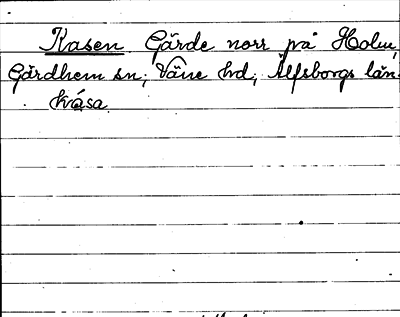 Kasen Gärde norr på Holm,
Gärdhem sn; Väne hd; Älfsborgs län.
Kåsa